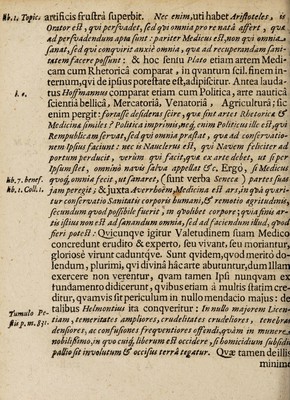 lib. 1. Topic. artificis frustrà superbit. Nec enim, uti habet Aristoteles, is
Orator est, qui persvadet, sed qui omnia pro re natâ affert, quæ
ad persvadendum apta sunt: pariter Medicus est, non qui omnia
sanat, sed qui conqvirit anxiè omnia, quæ ad recuperandam sani-
tatem facere possunt: & hoc sensu Plato etiam artem Medi-
cam cum Rhetoricâ comparat, in qvantum scil. finem in-
ternum, qvi de ipsius potestate est, adipiscitur. Antea lauda-
l. c. tus Hoffmannus comparat etiam cum Politica, arte nauticâ
scientiâ bellicâ, Mercatoriâ, Venatoriâ, Agriculturâ; sic
enim pergit: fortasse desideras scire, quæ sint artes Rhetoricæ &
Medicinæ similes? Politica imprimis, neq; enim Politicus ille est, qui
Rempublicam servat, sed qui omnia præstat, quæ ad conservatio-
nem Ipsius faciunt: nec is Nauclerus est, qui Navem feliciter ad
portum perducit, verùm qui facit, quæ ex arte debet, ut si per
Ipsum stet, omninò navis salva appellat &c. Ergo, si Medicus
lib. 7. benef. quoq; omnia fecit, ut sanaret, (sunt verba Senecæ) partes suas
lib. 1. Coll. 1. jam peregit; & juxta Averrhoëm, Medicina est ars, in quâ quæri-
tur conservatio Sanitatis corporis humani, & remotio ægritudinis,
secundum quod possibile fuerit, in quolibet corpore; quia finis ar-
tis istius non est ad sanandum omnia, sed ad faciendum illud, quod
fieri potest: Qvicunqve igitur Valetudinem suam Medico
concredunt erudito & experto, seu vivant, seu moriantur,
gloriosè virunt caduntqve. Sunt qvidem, qvod meritò do-
lendum, plurimi, qvi divinâ hâc arte abutuntur, dum Illam
exercere non verentur, quam tamen Ipsi nunqvam ex
fundamento didicerunt, qvibus etiam à multis statim cre-
ditur, quamvis sit periculum in nullo mendacio majus: de
Tumulo Pe- talibus Helmontius ita conqveritur: In nullo majorem Licen-
stis p. m. 831. tiam, temeritates ampliores, crudelitates crudeliores, tenebras
densiores, ac confusiones freqventiores offendi, qvàm in munere
nobilissimo, in quo cuiq; liberum est occidere, si homicidium subsidii
pallio sit involutum & occisus terrâ tegatur. Qvæ tamen de illis
minimè